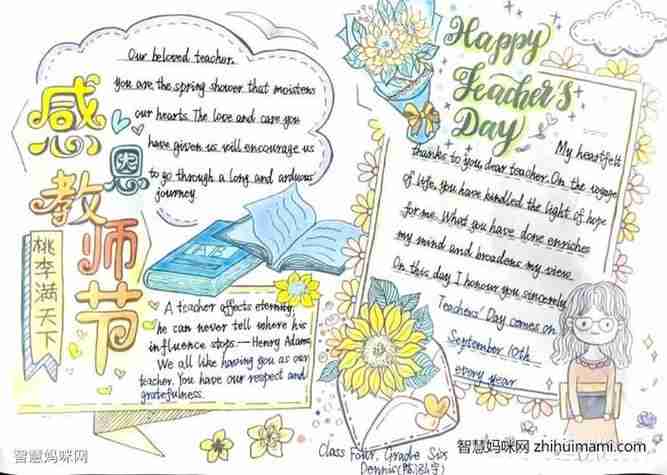 感恩教师节
桃李满天下
Our beloved teacher.
You are the spring shower that moistens
our hearts. The love and care you
have given us will encourage us
to go through a long and arduous
journey
A teacher affects eternity,
he can never tell where his
influence stops.—Henry Adams
We all like having you as our
teacher. You have our respect and
gratefulness.
Happy
Teacher's
Day
My heartfelt
thanks to you, dear teacher. On the voyage
of life, you have kindled the light of hope
for me. What you have done enriches
my mind and broadens my view.
On this day I honour you sincerely.
Teachers' Day comes on
September 10th
every year
Class Four, Grade Six
Dennis
智慧妈咪网
智慧妈咪网 zhihuimami.com